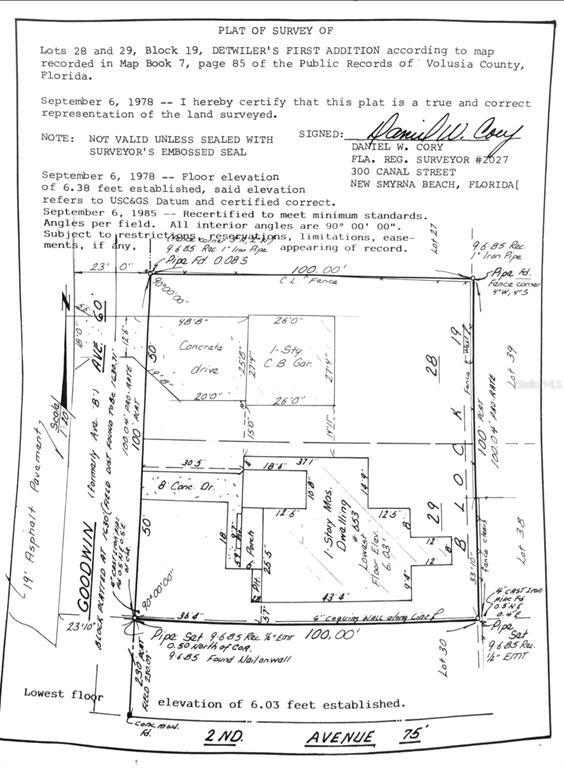 PLAT OF SURVEY OF
Lots 28 and 29, Block 19, DETWILER'S FIRST ADDITION according to map
recorded in Map Book 7, page 85 of the Public Records of Volusia County,
Florida.
September 6, 1978 -- I hereby certify that this plat is a true and correct
representation of the land surveyed.
NOTE: NOT VALID UNLESS SEALED WITH
SURVEYOR'S EMBOSSED SEAL
SIGNED: Daniel W. Cory
DANIEL W. CORY
FLA. REG. SURVEYOR #2027
300 CANAL STREET
NEW SMYRNA BEACH, FLORIDA[
September 6, 1978 -- Floor elevation
of 6.38 feet established, said elevation
refers to USC&GS Datum and certified correct.
September 6, 1985 -- Recertified to meet minimum standards.
Angles per field. All interior angles are 90° 00' 00".
Subject to restrictions, reservations, limitations, ease-
ments, if any, appearing of record.
9685 Rec 1" Iron Pipe
Pipe Fd 0.08 S
23' 0"
100.00'
C L Fence
Lot 27
9685 Rec.
1" Iron Pipe
Pipe Fd.
Fence corner
4"W, 4"S
90°00'00"
N
Scale
1"=20'
18'0"
AVE. 60'
12'6"
50'
100.04' PRO-RATE
100' PLAT
48'8"
Concrete
drive
20'0"
25'8"
26'0"
1-Sty.
C B Gar.
27'4"
27'4"
26'0"
15'0"
14'11"
28
29
BLOCK 19
Lot 39
100' PLAT
100.04 PRO-RATE
Lot 38
fence clears
33'10"
19' Asphalt Pavement
GOODWIN
(Formerly Ave. "B")
BLOCK PLATTED AT 1630'
30.5'
8' Conc. Dr.
50'
18'6"
37.1'
10'8"
14'9"
12'6"
12'5"
8'
12'
8'
1-Story Mas.
Dwelling
#653
Lowest
Floor Elev.
6.03'
18'
P. Porch
25'5"
43'4"
90°00'00"
23'10"
36'4"
6" Coquina Wall along Line
4" Cast Iron
pipe Fd
0.5' N &
0.4' E
Pipe
Set
9685 Rec.
1/2" EMT
Pipe Set 9685 Rec 1/2" EMT
0.50 North of Cor.
9685 Found Nail on wall
100.00'
Lot 30
230' PLAT
FIELD 230.09'
Lowest floor elevation of 6.03 feet established.
Conc. mon.
Fd.
2ND. AVENUE 75'